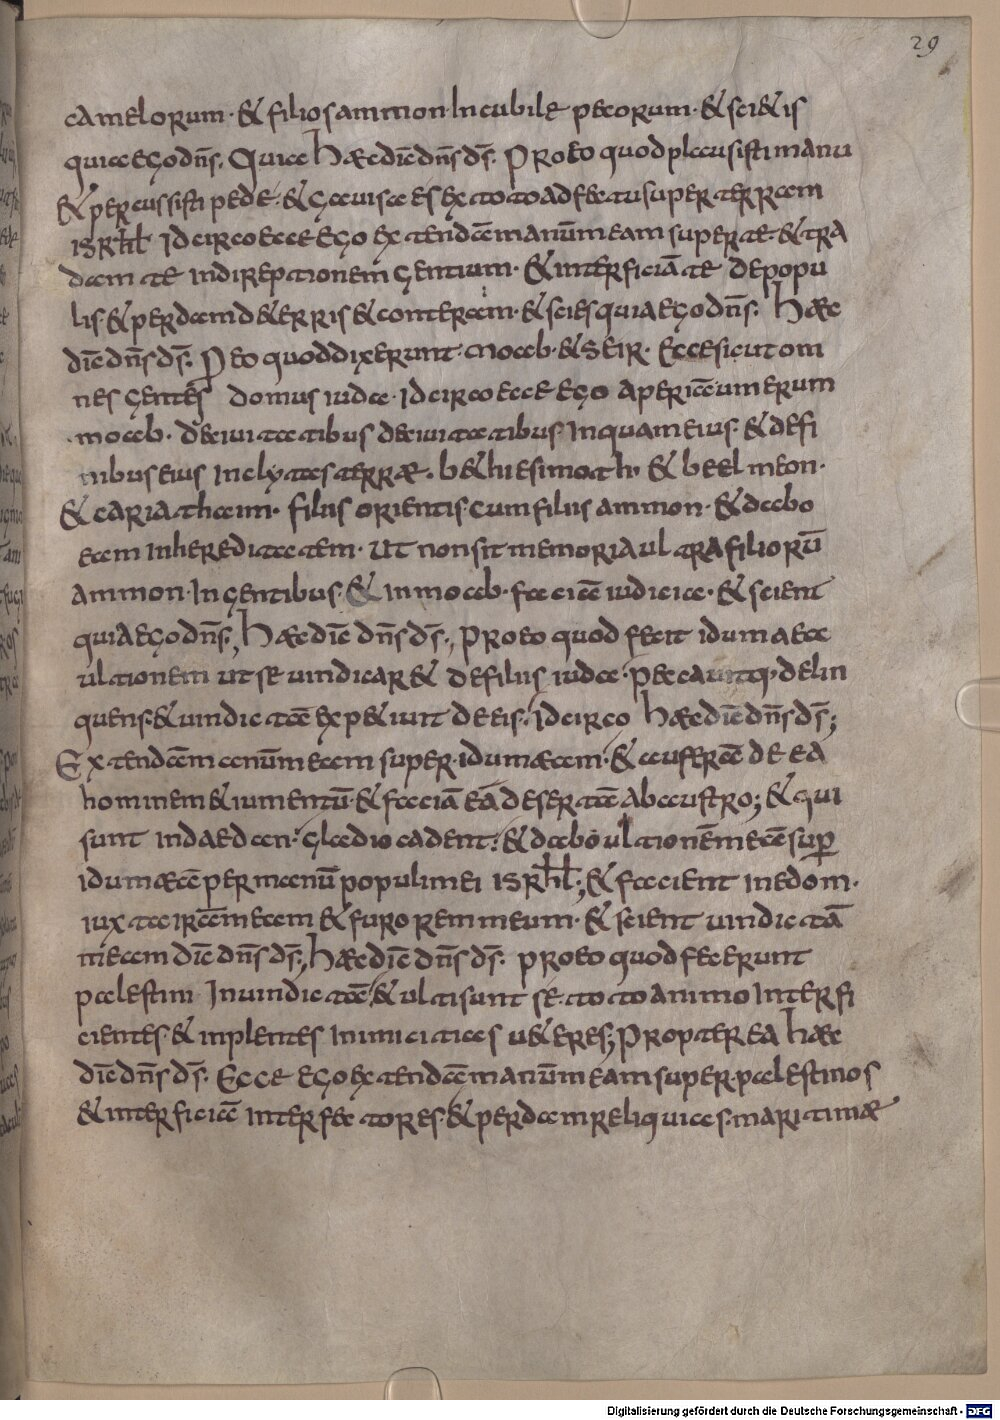 29
camelorum · & filiosammon Incubile pecorum · & sci&is
quiaegodñs. Quia hæcdic̄dñsds̄. Pro eo quodplaususisti manu
& percussisti pede · & gauisa es ex totoadfectu super terram
isrhl̄ Idcircoecce ego extendāmanūmeam super te · & tra
dam te indireptionem gentium · & interficiā te depopu
lis & perdamd&erris & conteram · & sciesquiaegodñs. hæc
dic̄dñsds̄. P eo quoddixerunt · moab · & seir · Eccesicut om
nes gentes domus iuda · Idcircoecce ego aperiāumerum
moab · deciuitatibus deciuitatibus Inquameius · & defi
nibuseius Inclytas terræ · b&hiesimoth · & beelmeon ·
& cariathaim · filiis orientis cumfiliis ammon · & dabo
eam Inhereditatem · ut nonsitmemoria ultrafiliorū
ammon · Ingentibus · & Inmoab · faciā iudicia · & scient
quiaegodñs; hæcdic̄ dñsds̄; pro eo quod fecit idumaea
ultionem ut se uindicar& defiliis iuda · peccauitq; delin
quens · & uindictā exp&iuit deeis · Idcirco hæcdic̄dñsds̄;
Extendāmanūmeam super idumæam · & auferā de ea
hominem & iumentū · & faciā eā desertā abaustro; & qui
sunt indaedan · gladio cadent · & dabo ultionēmeāsup
idumæā permanū populimei isrhl̄; & facient inedom ·
iuxtairāmeam & furoremmeum · & scient uindictā
meam dic̄ dñsds̄; hæcdic̄ dñsds̄. pro eo quodfecerunt
palestini Inuindictā & ultisunt se · totoanimo Interfi
cientes · & inplentes inimicitias u&eres; Propterea hæc
dic̄dñsds̄. Ecce ego extendāmanūmeamsuperpalestinos
& interficiā interfectores · & perdamreliquias · maritimæ
Digitalisierung gefördert durch die Deutsche Forschungsgemeinschaft - DFG